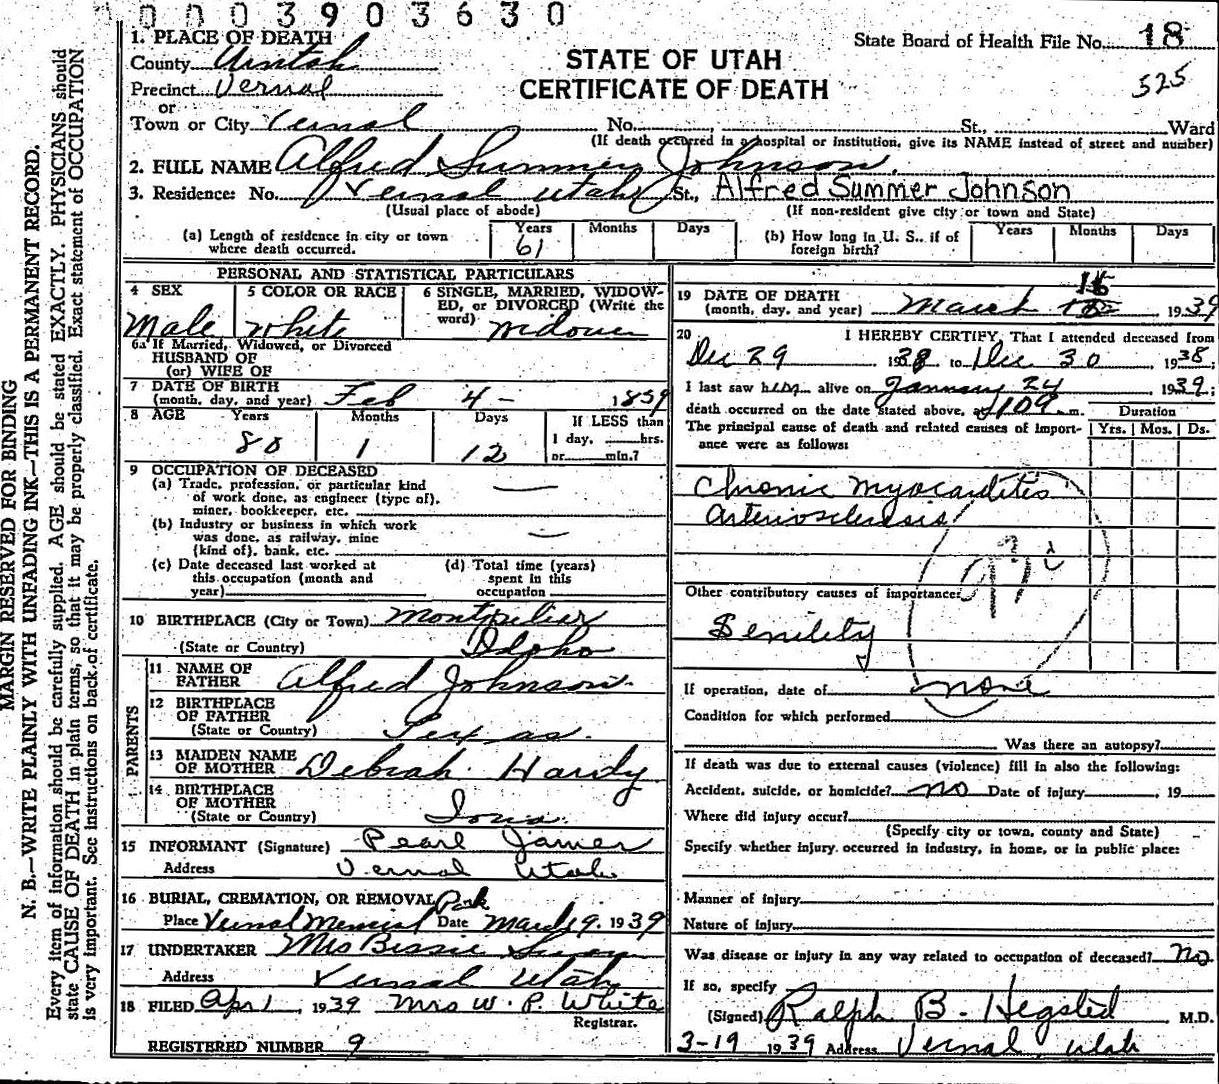 0003903630
MARGIN RESERVED FOR BINDING
N. B.—WRITE PLAINLY WITH UNFADING INK—THIS IS A PERMANENT RECORD.
Every item of information should be carefully supplied. AGE should be stated EXACTLY. PHYSICIANS should
state CAUSE OF DEATH in plain terms, so that it may be properly classified. Exact statement of OCCUPATION
is very important. See instructions on back of certificate.
1. PLACE OF DEATH
County Uintah
Precinct Vernal
or
Town or City Vernal No. St., Ward
STATE OF UTAH
CERTIFICATE OF DEATH
State Board of Health File No. 18
525
(If death occurred in a hospital or institution, give its NAME instead of street and number)
2. FULL NAME Alfred Summer Johnson.
3. Residence: No. Vernal Utah St., Alfred Summer Johnson
(Usual place of abode) (If non-resident give city or town and State)
(a) Length of residence in city or town where death occurred. Years 61 Months Days
(b) How long in U. S., if of foreign birth? Years Months Days
PERSONAL AND STATISTICAL PARTICULARS
4 SEX Male
5 COLOR OR RACE White
6 SINGLE, MARRIED, WIDOWED, or DIVORCED (Write the word) Widower
6a If Married, Widowed, or Divorced
HUSBAND OF
(or) WIFE OF
7 DATE OF BIRTH
(month, day, and year) Feb 4 - 1859
8 AGE Years 80 Months 1 Days 12 If LESS than
1 day, hrs.
or min.?
9 OCCUPATION OF DECEASED
(a) Trade, profession, or particular kind
of work done, as engineer (type of),
miner, bookkeeper, etc. —
(b) Industry or business in which work
was done, as railway, mine
(kind of), bank, etc. —
(c) Date deceased last worked at
this occupation (month and
year)
(d) Total time (years)
spent in this
occupation
10 BIRTHPLACE (City or Town) Montpelier
(State or Country) Idaho
PARENTS
11 NAME OF
FATHER Alfred Johnson.
12 BIRTHPLACE
OF FATHER
(State or Country) Texas.
13 MAIDEN NAME
OF MOTHER Debrah Hardy
14 BIRTHPLACE
OF MOTHER
(State or Country) Iowa.
15 INFORMANT (Signature) Pearl
Address Vernal Utah
16 BURIAL, CREMATION, OR REMOVAL Park
Place Vernal Memorial Date March 19. 1939
17 UNDERTAKER Mrs Bessie
Address Vernal Utah
18 FILED Apr 1, 1939 Mrs W. P. White
Registrar.
REGISTERED NUMBER 9
19 DATE OF DEATH
(month, day, and year) March 16, 1939
20 I HEREBY CERTIFY, That I attended deceased from
Dec 29 1938 to Dec 30 1938;
I last saw him alive on January 24 1939;
death occurred on the date stated above, at 109 m.
Duration
The principal cause of death and related causes of importance were as follows: Yrs. Mos. Ds.
Chronic Myocarditis
Arteriosclerosis
Other contributory causes of importance:
Senility
If operation, date of none
Condition for which performed
Was there an autopsy?
If death was due to external causes (violence) fill in also the following:
Accident, suicide, or homicide? no Date of injury , 19
Where did injury occur?
(Specify city or town, county and State)
Specify whether injury occurred in industry, in home, or in public place:
Manner of injury
Nature of injury
Was disease or injury in any way related to occupation of deceased? no
If so, specify
(Signed) Ralph B. Hegsted M.D.
3-19 1939 Address Vernal, Utah